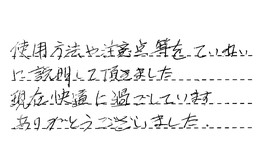 使用方法や注意点等をていねい
に説明して頂きました
現在快適に過ごしています
ありがとうございました.